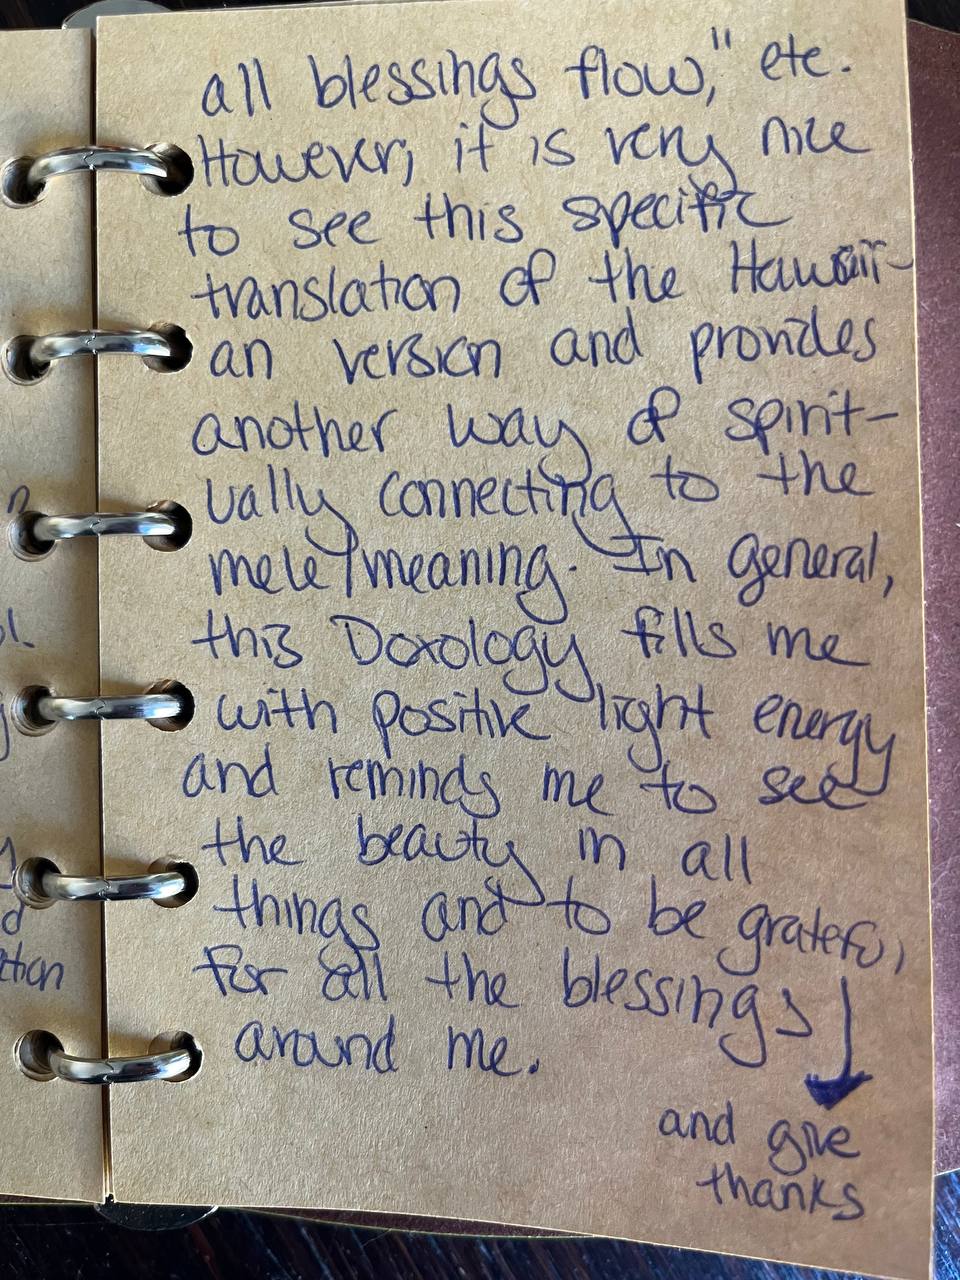 all blessings flow," etc.
However, it is very nice
to see this specific
translation of the Hawaii-
an version and provides
another way of spirit-
ually connecting to the
mele/meaning. In general,
this Doxology fills me
with positive light energy
and reminds me to see
the beauty in all
things and to be grateful,
for all the blessings
around me.
and give
thanks
ction